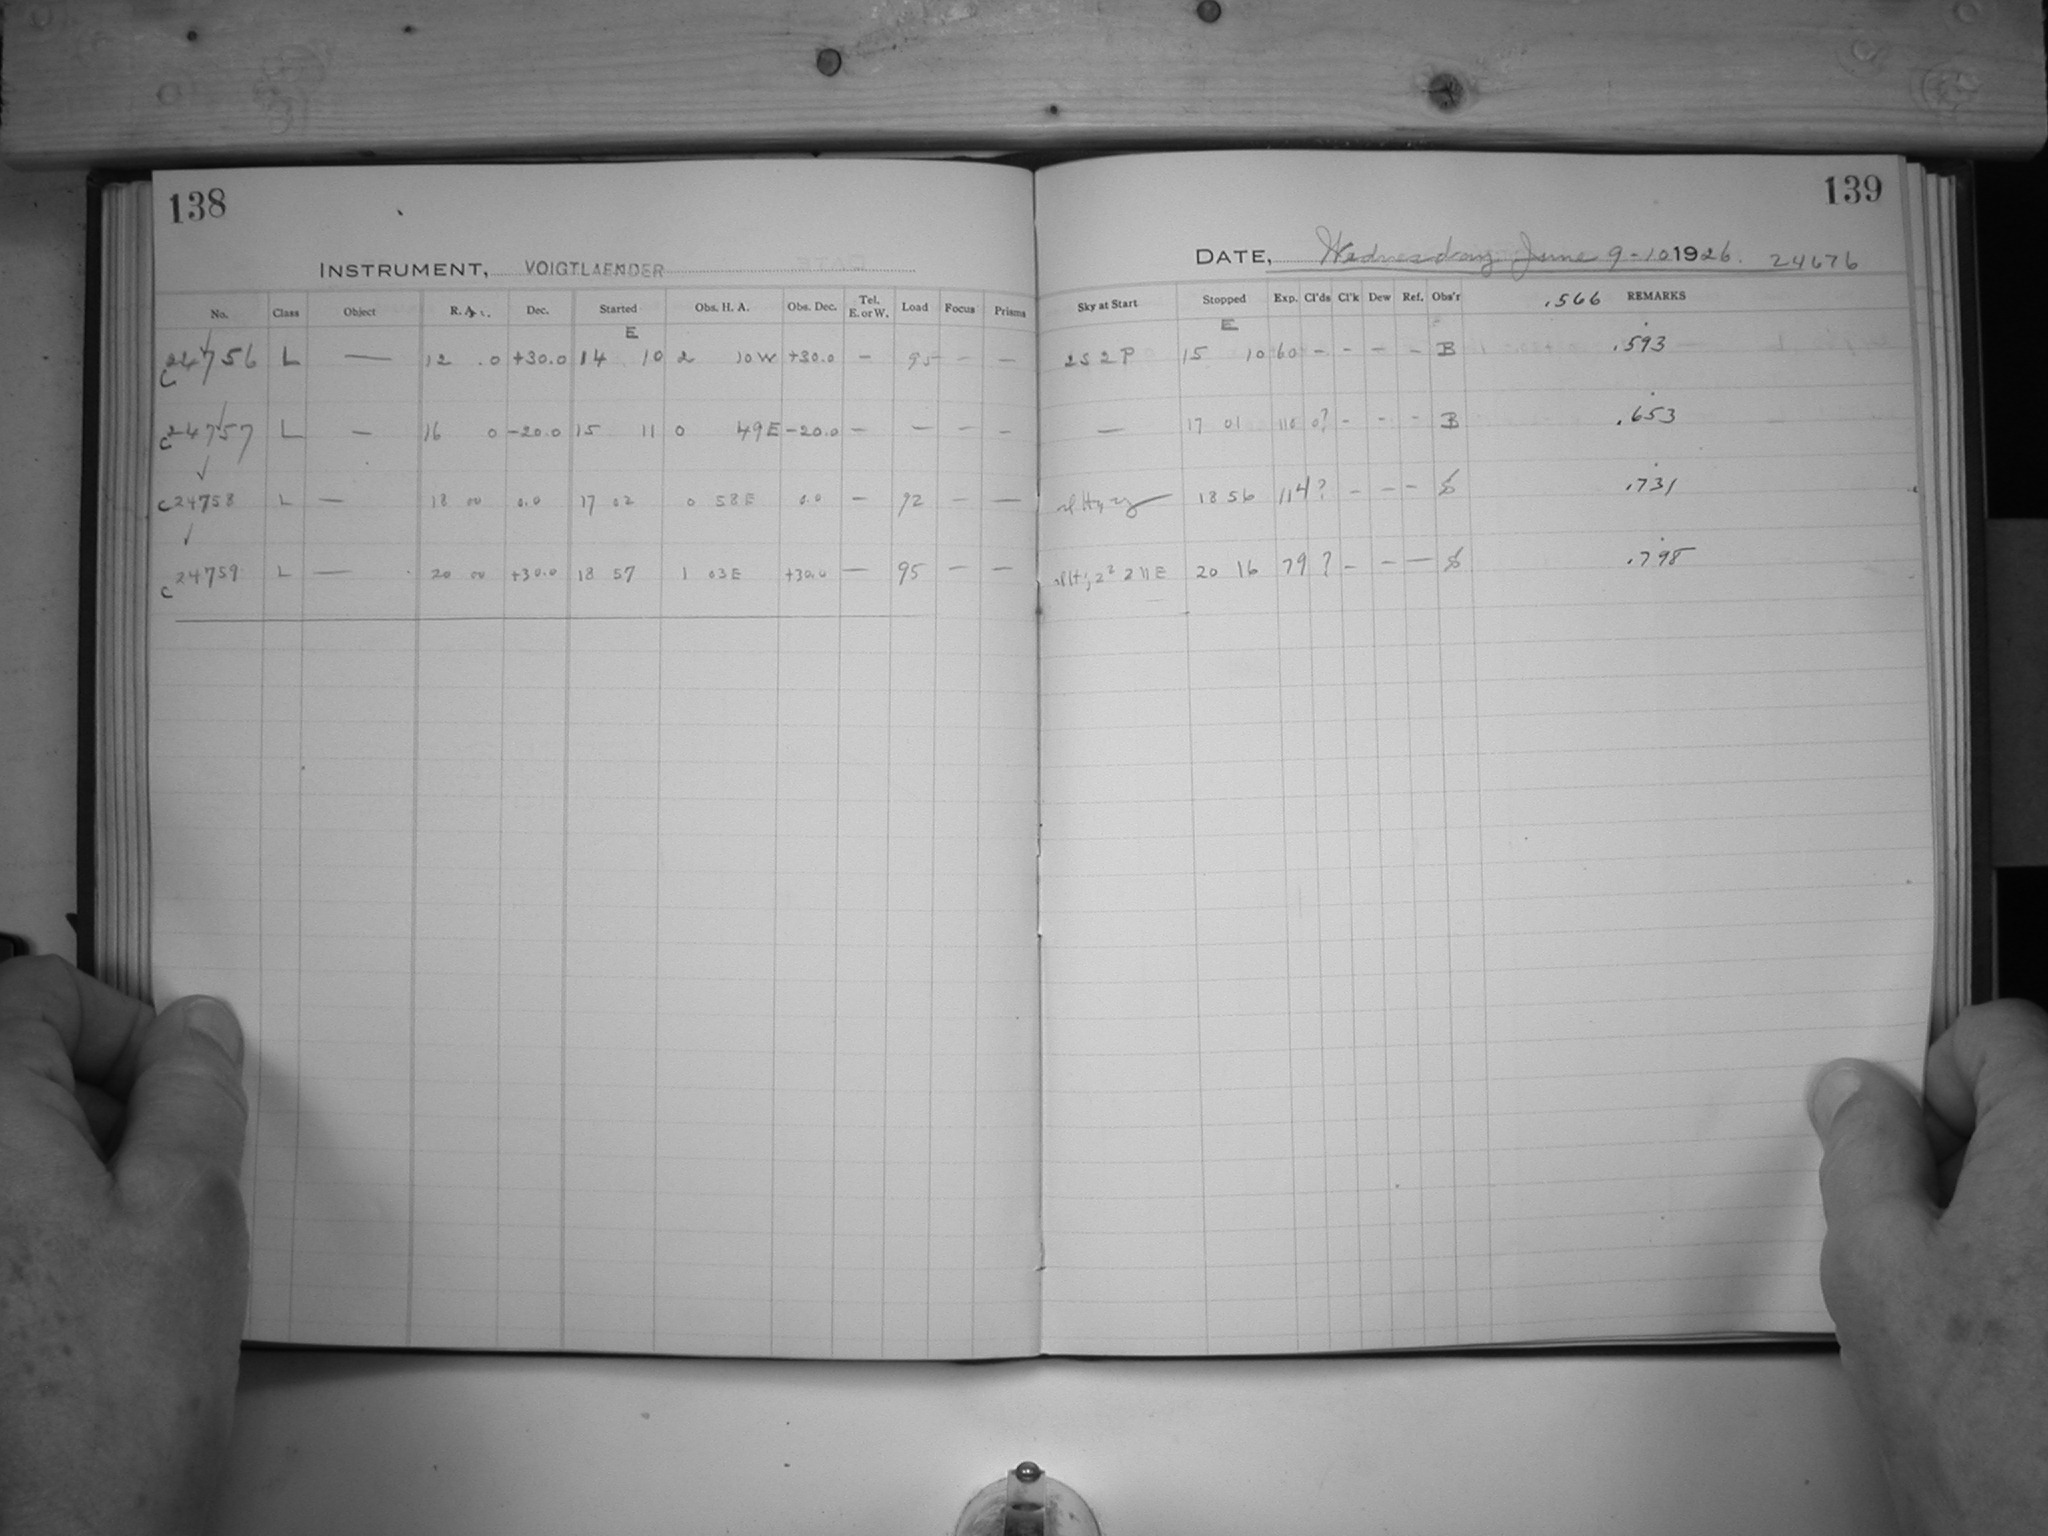 138
INSTRUMENT, VOIGTLAENDER
No. Class Object R.A. Dec. Started Obs. H. A. Obs. Dec. Tel. E. or W. Load Focus Prisms
E
C 24756 L — 12 .0 +30.0 14 10 2 10 W +30.0 – 95 – –
C 24757 L — 16 0 -20.0 15 11 0 49 E -20.0 – – – –
C 24758 L — 18 00 0.0 17 02 0 58 E 0.0 – 92 – —
C 24759 L — 20 00 +30.0 18 57 1 03 E +30.0 — 95 – –
139
DATE, Wednesday June 9-10 1926. 24676
Sky at Start Stopped Exp. Cl'ds Cl'k Dew Ref. Obs'r .566 REMARKS
E
2S 2P 15 10 60 – – – – B .593
— 17 01 110 0? – – – B .653
18 56 114 ? – – – .731
20 16 79 ? – – — .798